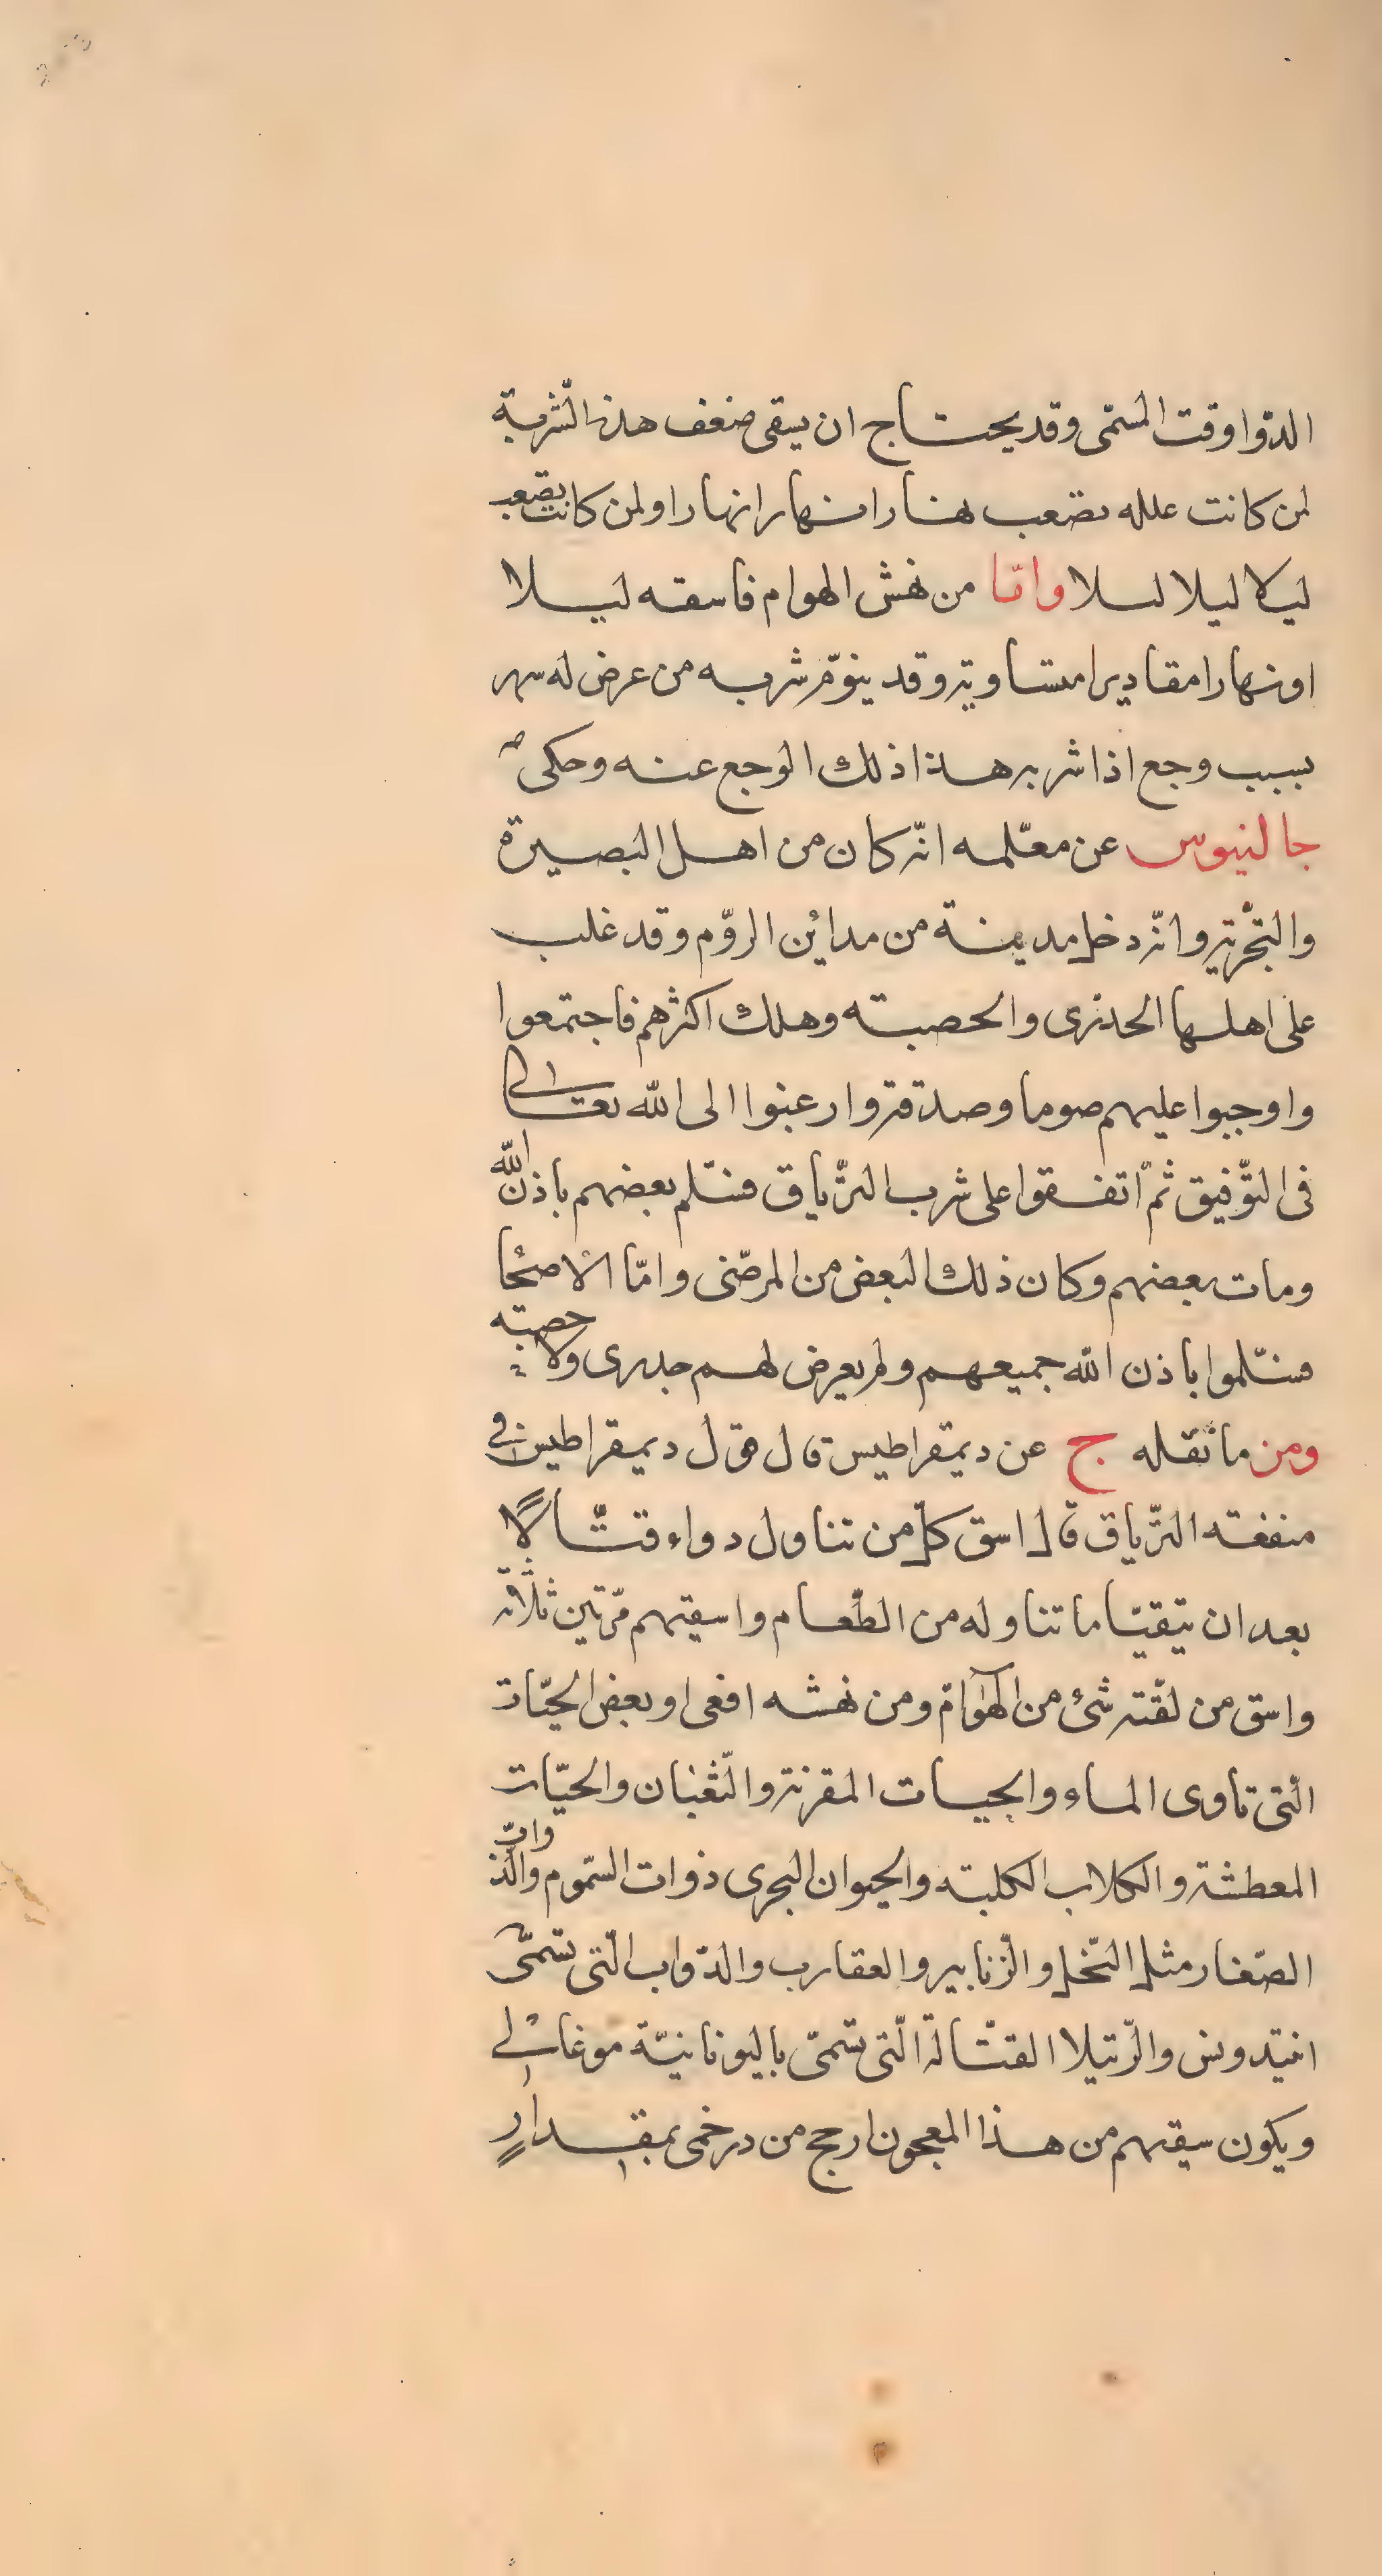 الدّوا وقت المسمّى وقد يحتاج ان يسقى ضعف هذه الشّربة
لمن كانت علله تصعب نهارا نهارا نهارا ولمن كانت يصعب
ليلا ليلا ليلا وامّا من نهش الهوام فاسقه ليلا
او نهارا مقادير امتساوية وقد ينوّم شربه من عرض له سهر
بسبب وجع اذا شربه هذا ذلك الوجع عنه وحكى
جالينوس عن معلّمه انّه كان من اهل البصيرة
والتّجربة وانّه دخل مدينة من مدائن الروّم وقد غلب
على اهلها الجدرى والحصبته وهلك اكثرهم فاجتمعوا
واوجبوا عليهم صوما وصدقة وارغبوا الى الله تعالى
فى التّوفيق ثمّ اتفقوا على شرب التّرياق فسّلم بعضهم باذن الله
ومات بعضهم وكان ذلك البعض من المرضى وامّا الاصحّا
فسّلموا باذن الله جميعهم ولم يعرض لهم جدرى ولا حصبته
ومن ما نقله ج عن ديمقراطيس قال قول ديمقراطيس فى
منفعته التّرياق قال اسق كلّ من تناول دواء قتّالًا
بعد ان يتقيّا ما تناوله من الطّعام واسقيهم مرّتين ثلاثة
واسق من لقته شئ من الهوامّ ومن نهشه افعى او بعض الحيّات
الّتى تاوى الماء والحيات المقرنة والثّعبان والحيّات
المعطشة والكلاب الكلبته والحيوان البحرى ذوات السّموم والذّواتّ
الصّغار مثل النّحل والزّنابير والعقارب والدّواب الّتى تسمّى
انيدوس والرّتيلا القتّالة الّتى تسمّى باليونانيّة موغالى
ويكون سقيهم من هذا المعجون ارجح من درخمى بمقدارٍ